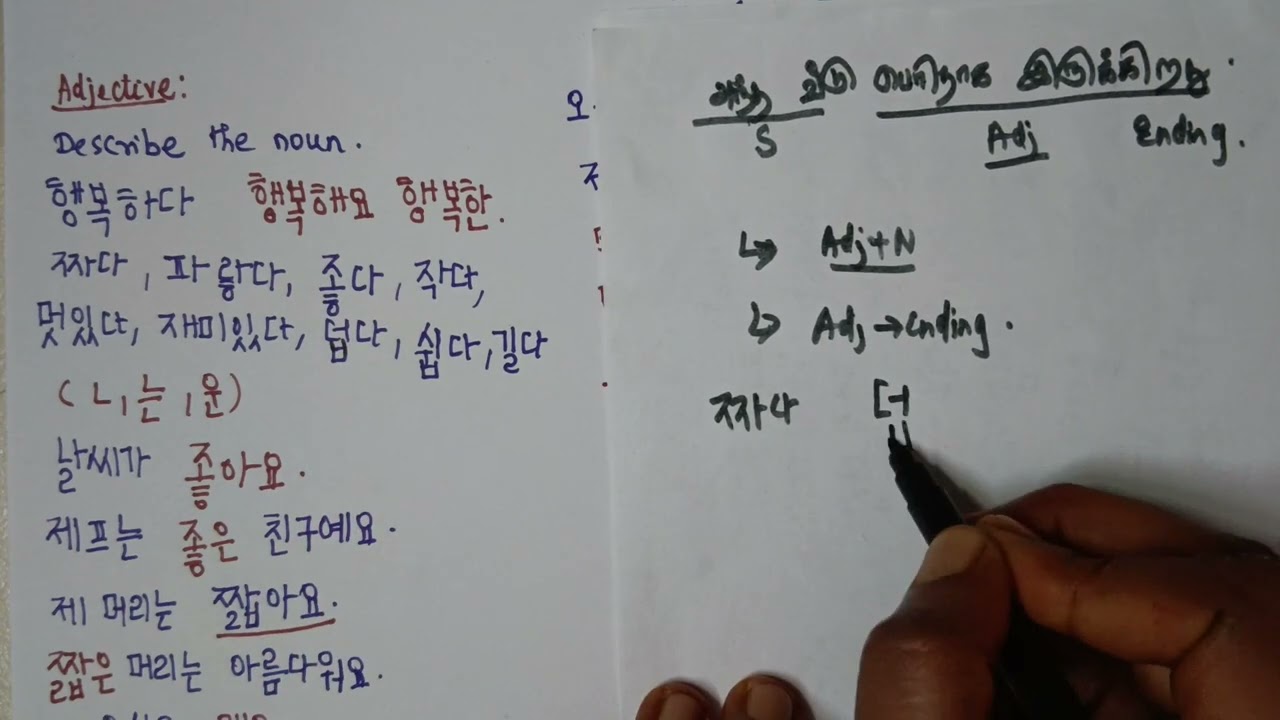 Adjective:
Describe the noun.
행복하다 행복해요 행복한.
짜다, 파랗다, 좋다, 작다,
멋있다, 재미있다, 덥다, 쉽다, 길다
(ㄴ, 는, 운)
날씨가 좋아요.
제프는 좋은 친구예요.
제 머리는 짧아요.
짧은 머리는 아름다워요.
오.
அந்த வீடு பெரிதாக இருக்கிறது.
S Adj Ending.
↳ Adj+N
↳ Adj → Ending.